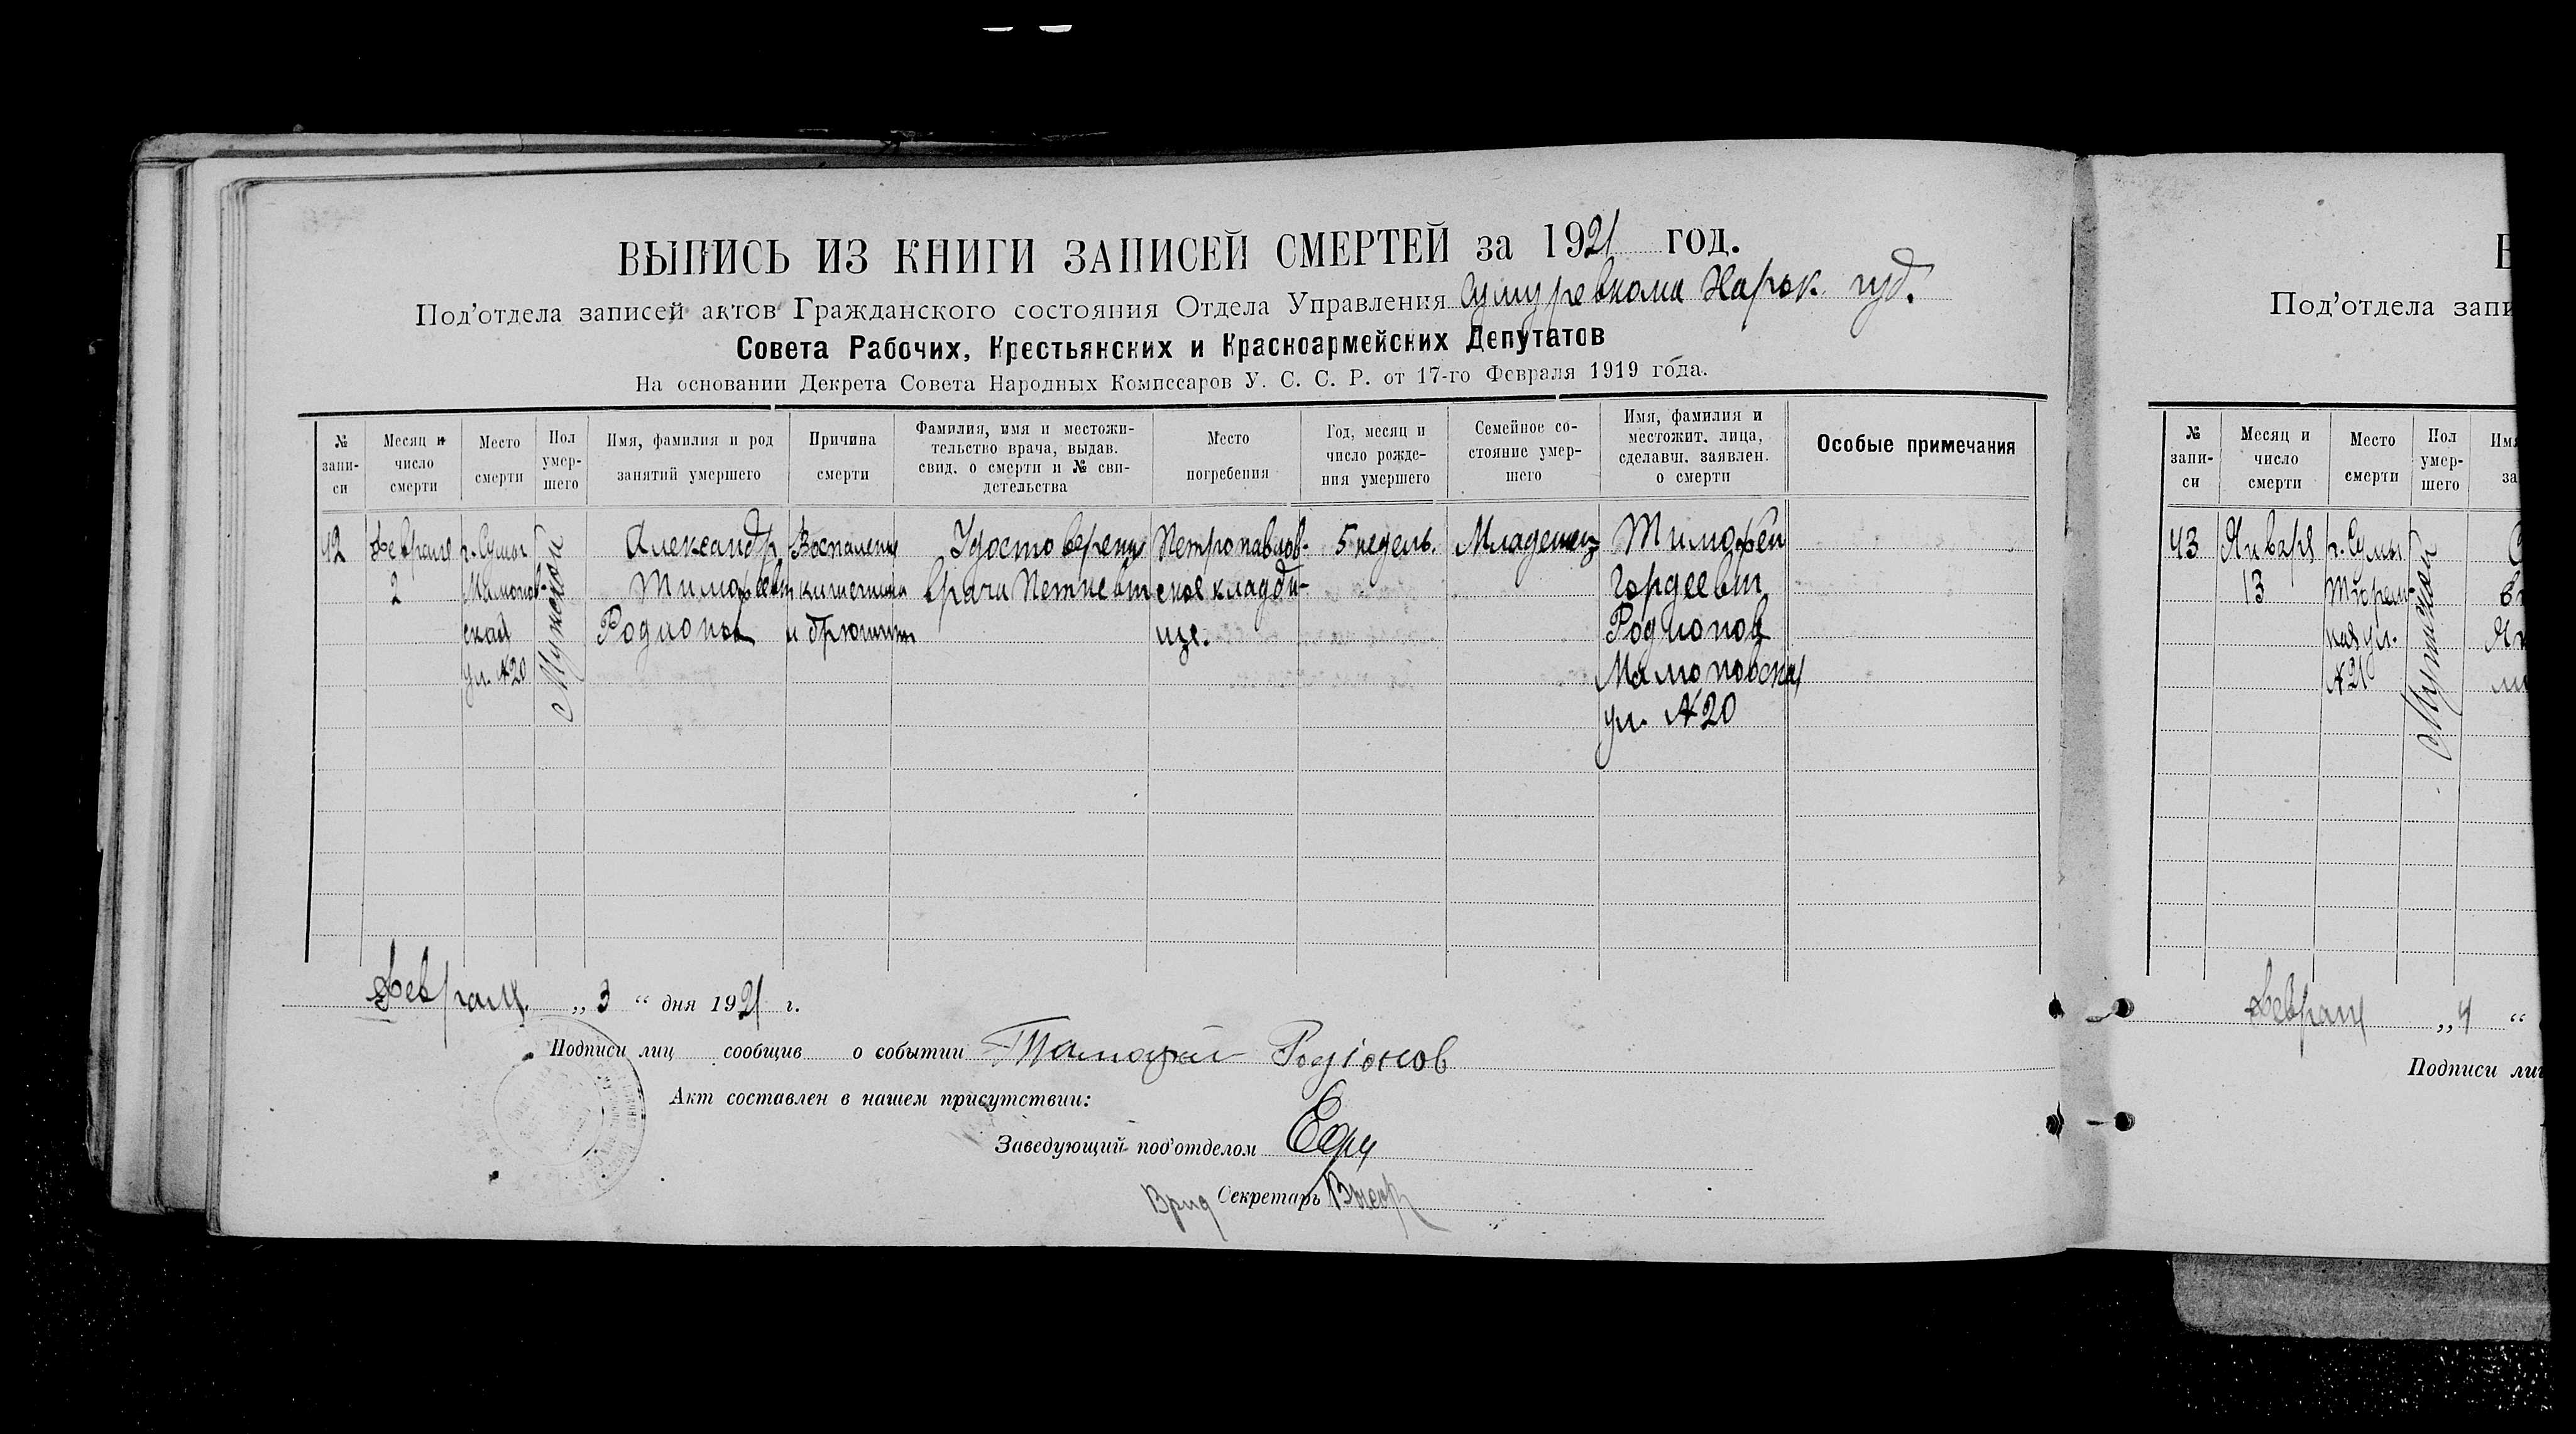 ВЫПИСЬ ИЗ КНИГИ ЗАПИСЕЙ СМЕРТЕЙ за 1921 год.
Под'отдела записей актов Гражданского состояния Отдела Управления Сумуревкома Харьк. губ.
Совета Рабочих, Крестьянских и Красноармейских Депутатов
На основании Декрета Совета Народных Комиссаров У. С. С. Р. от 17-го Февраля 1919 года.
№ запи-
си
Месяц и
число
смерти
Место
смерти
Пол
умер-
шего
Имя, фамилия и род
занятий умершего
Причина
смерти
Фамилия, имя и местожи-
тельство врача, выдав.
свид. о смерти и № сви-
детельства
Место
погребения
Год, месяц и
число рожде-
ния умершего
Семейное со-
стояние умер-
шего
Имя, фамилия и
местожит. лица,
сделавш. заявлен.
о смерти
Особые примечания
42
Февраля
2
г. Сумы
Мамонов-
ская
ул. №20
Мужской
Александр
Тимофеевич
Родионов
Воспаление
кишечника
и брюшины
Удостоверение
врача
Петропавлов-
ское кладби-
ще.
5 недель.
Младенец
Тимофей
Гордеевич
Родионов
Мамоновская
ул. №20
Февраля „3“ дня 1921 г.
Подписи лиц сообщив о событии Тимофей Родіонов
Акт составлен в нашем присутствии:
Заведующий под'отделом
Врид Секретарь
Под'отдела запи
№
запи-
си
Месяц и
число
смерти
Место
смерти
Пол
умер-
шего
43
Января
13
г. Сумы
Тюрем-
ная ул.
№21
Мужской
Февраля „4“
Подписи лиц